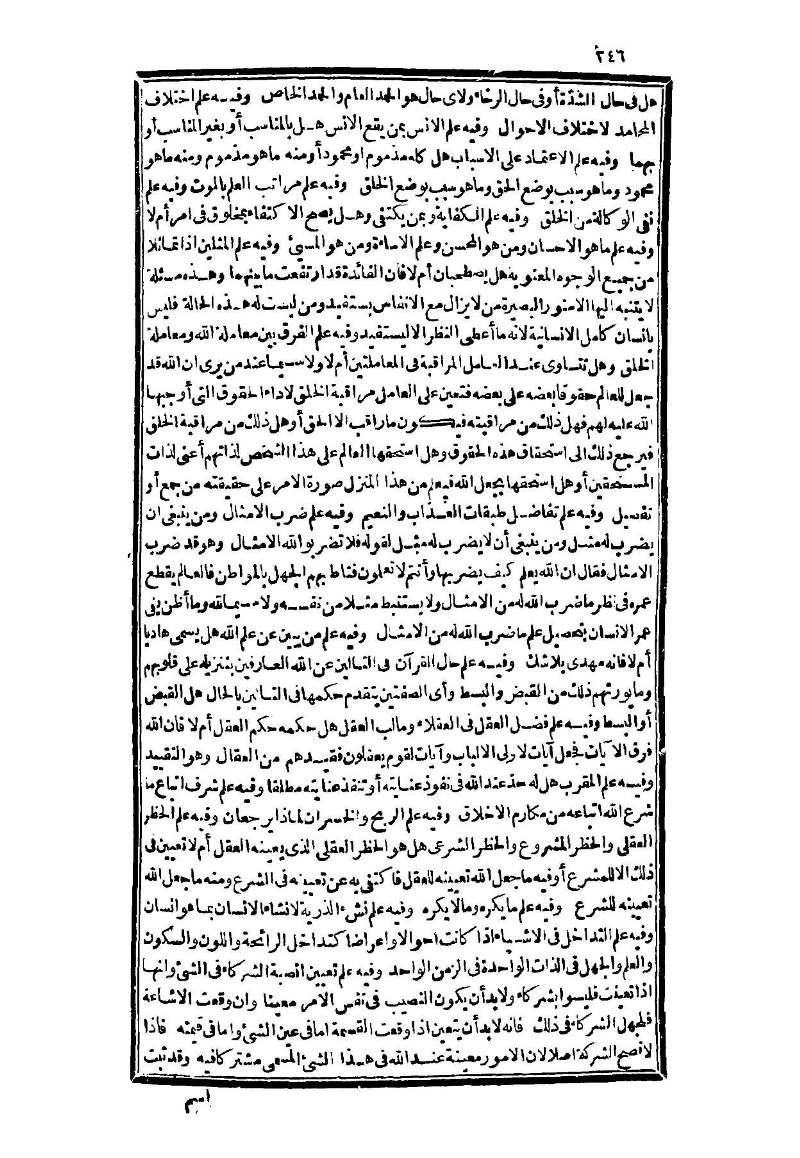 ٢٤٦
هل فى حال الشدة أو فى حال الرخاء ولاى حال هو الحمد العام والحمد الخاص وفيه علم اختلاف
المحامد لاختلاف الاحوال وفيه علم الانس بمن يقع الانس هل بالمناسب أو بغير المناسب أو
بهما وفيه علم الاعتماد على الاسباب هل كله مذموم او محمود أو منه ما هو مذموم ومنه ما هو
محمود وما هو سبب بوضع الحق وما هو سبب بوضع الخلق وفيه علم مراتب العلم بالموت وفيه علم
نفى الوكالة من الخلق وفيه علم الكفاية وبمن يكتفى وهل يصح الاكتفاء بمخلوق فى امر أم لا
وفيه علم ما هو الاحسان ومن هو المحسن وعلم الاساءة ومن هو المسىء وفيه علم المثلين اذا تماثلا
من جميع الوجوه المعنوية هل يصطحبان أم لا فان الفائدة قد ارتفعت ما بينهما وهذه مسئلة
لا يتنبه اليها الا منور البصيرة من لا يزال مع الانفاس يستفيد ومن ليست له هذه الحالة فليس
بانسان كامل الانسانية لانه ما أعطى النظر الا ليستفيد وفيه علم الفرق بين معاملة الله ومعاملة
الخلق وهل تتساوى عند العامل المراقبة فى المعاملتين أم لا ولا سيما عند من يرى ان الله قد
جعل للعالم حقوقا بعضه على بعضه فتعين على العامل مراقبة الخلق لاداء الحقوق التى أوجبها
الله عليه لهم فهل ذلك من مراقبته فيكون ما راقب الا الحق أو هل ذلك من مراقبة الخلق
فيرجع ذلك الى استحقاق هذه الحقوق وهل استحقها العالم على هذا الشخص لذاتهم أعنى لذات
المستحقين أو هل استحقها بجعل الله فيعلم من هذا المنزل صورة الامر على حقيقته من جمع أو
تفصيل وفيه علم تفاضل طبقات العذاب والنعيم وفيه علم ضرب الامثال ومن ينبغى ان
يضرب له مثل ومن ينبغى أن لا يضرب له مثل لقوله فلا تضربوا لله الامثال وهو قد ضرب
الامثال فقال ان الله يعلم كيف يضربها وأنتم لا تعلمون فناط بهم الجهل بالمواطن فالعالم يقطع
عمره فى نظر ما ضرب الله له من الامثال ولا يستنبط مثلا من نفسه ولا سيما لله وما أظن يفى
عمر الانسان بتحصيل علم ما ضرب الله له من الامثال وفيه علم من يبين عن علم الله هل يسمى هاديا
أم لا فانه مهدى بلا شك وفيه علم حال القرآن فى التالين عن الله العارفين بتنزيله على قلوبهم
وما يورثهم ذلك من القبض والبسط وأى الصفتين يتقدم حكمها فى التالين بالحال هل القبض
أو البسط وفيه علم فضل العقل فى العقلاء وما لب العقل هل حكمه حكم العقل أم لا فان الله
فرق الآيات فجعل آيات لاولى الالباب وآيات لقوم يعقلون فقيدهم من العقال وهو التقييد
وفيه علم المقرب هل له حد عند الله فى نفوذ عنايته أو تنفذ عنايته مطلقا وفيه علم شرف اتباع ما
شرع الله اتباعه من مكارم الاخلاق وفيه علم الربح والخسران لماذا يرجعان وفيه علم الحظر
العقلى والحظر المشروع والحظر الشرعى هل هو الحظر العقلى الذى يعينه العقل أم لا تعيين فى
ذلك الا للمشرع أو فيه ما جعل الله تعيينه للعقل فاكتفى به عن تعيينه فى الشرع ومنه ما جعل الله
تعيينه للشرع وفيه علم ما يكره وما لا يكره وفيه علم نشء الذرية لانشاء الانسان بما هو انسان
وفيه علم التداخل فى الاشياء اذا كانت احوالا واعراضا كتداخل الرائحة واللون والسكون
والعلم والجهل فى الذات الواحدة فى الزمن الواحد وفيه علم تعيين انصبة الشركاء فى الشئ وانها
اذا تعينت فليسوا بشركاء ولا بد أن يكون النصيب فى نفس الأمر معينا وان وقعت الاشاعة
فلجهل الشركاء فى ذلك فانه لا بد أن يتعين اذا وقعت القسمة اما فى عين الشئ واما فى قيمته فاذا
لا تصح الشركة اصلا لان الامور معينة عند الله فى هذا الشئ المسمى مشتركا فيه وقد ثبت